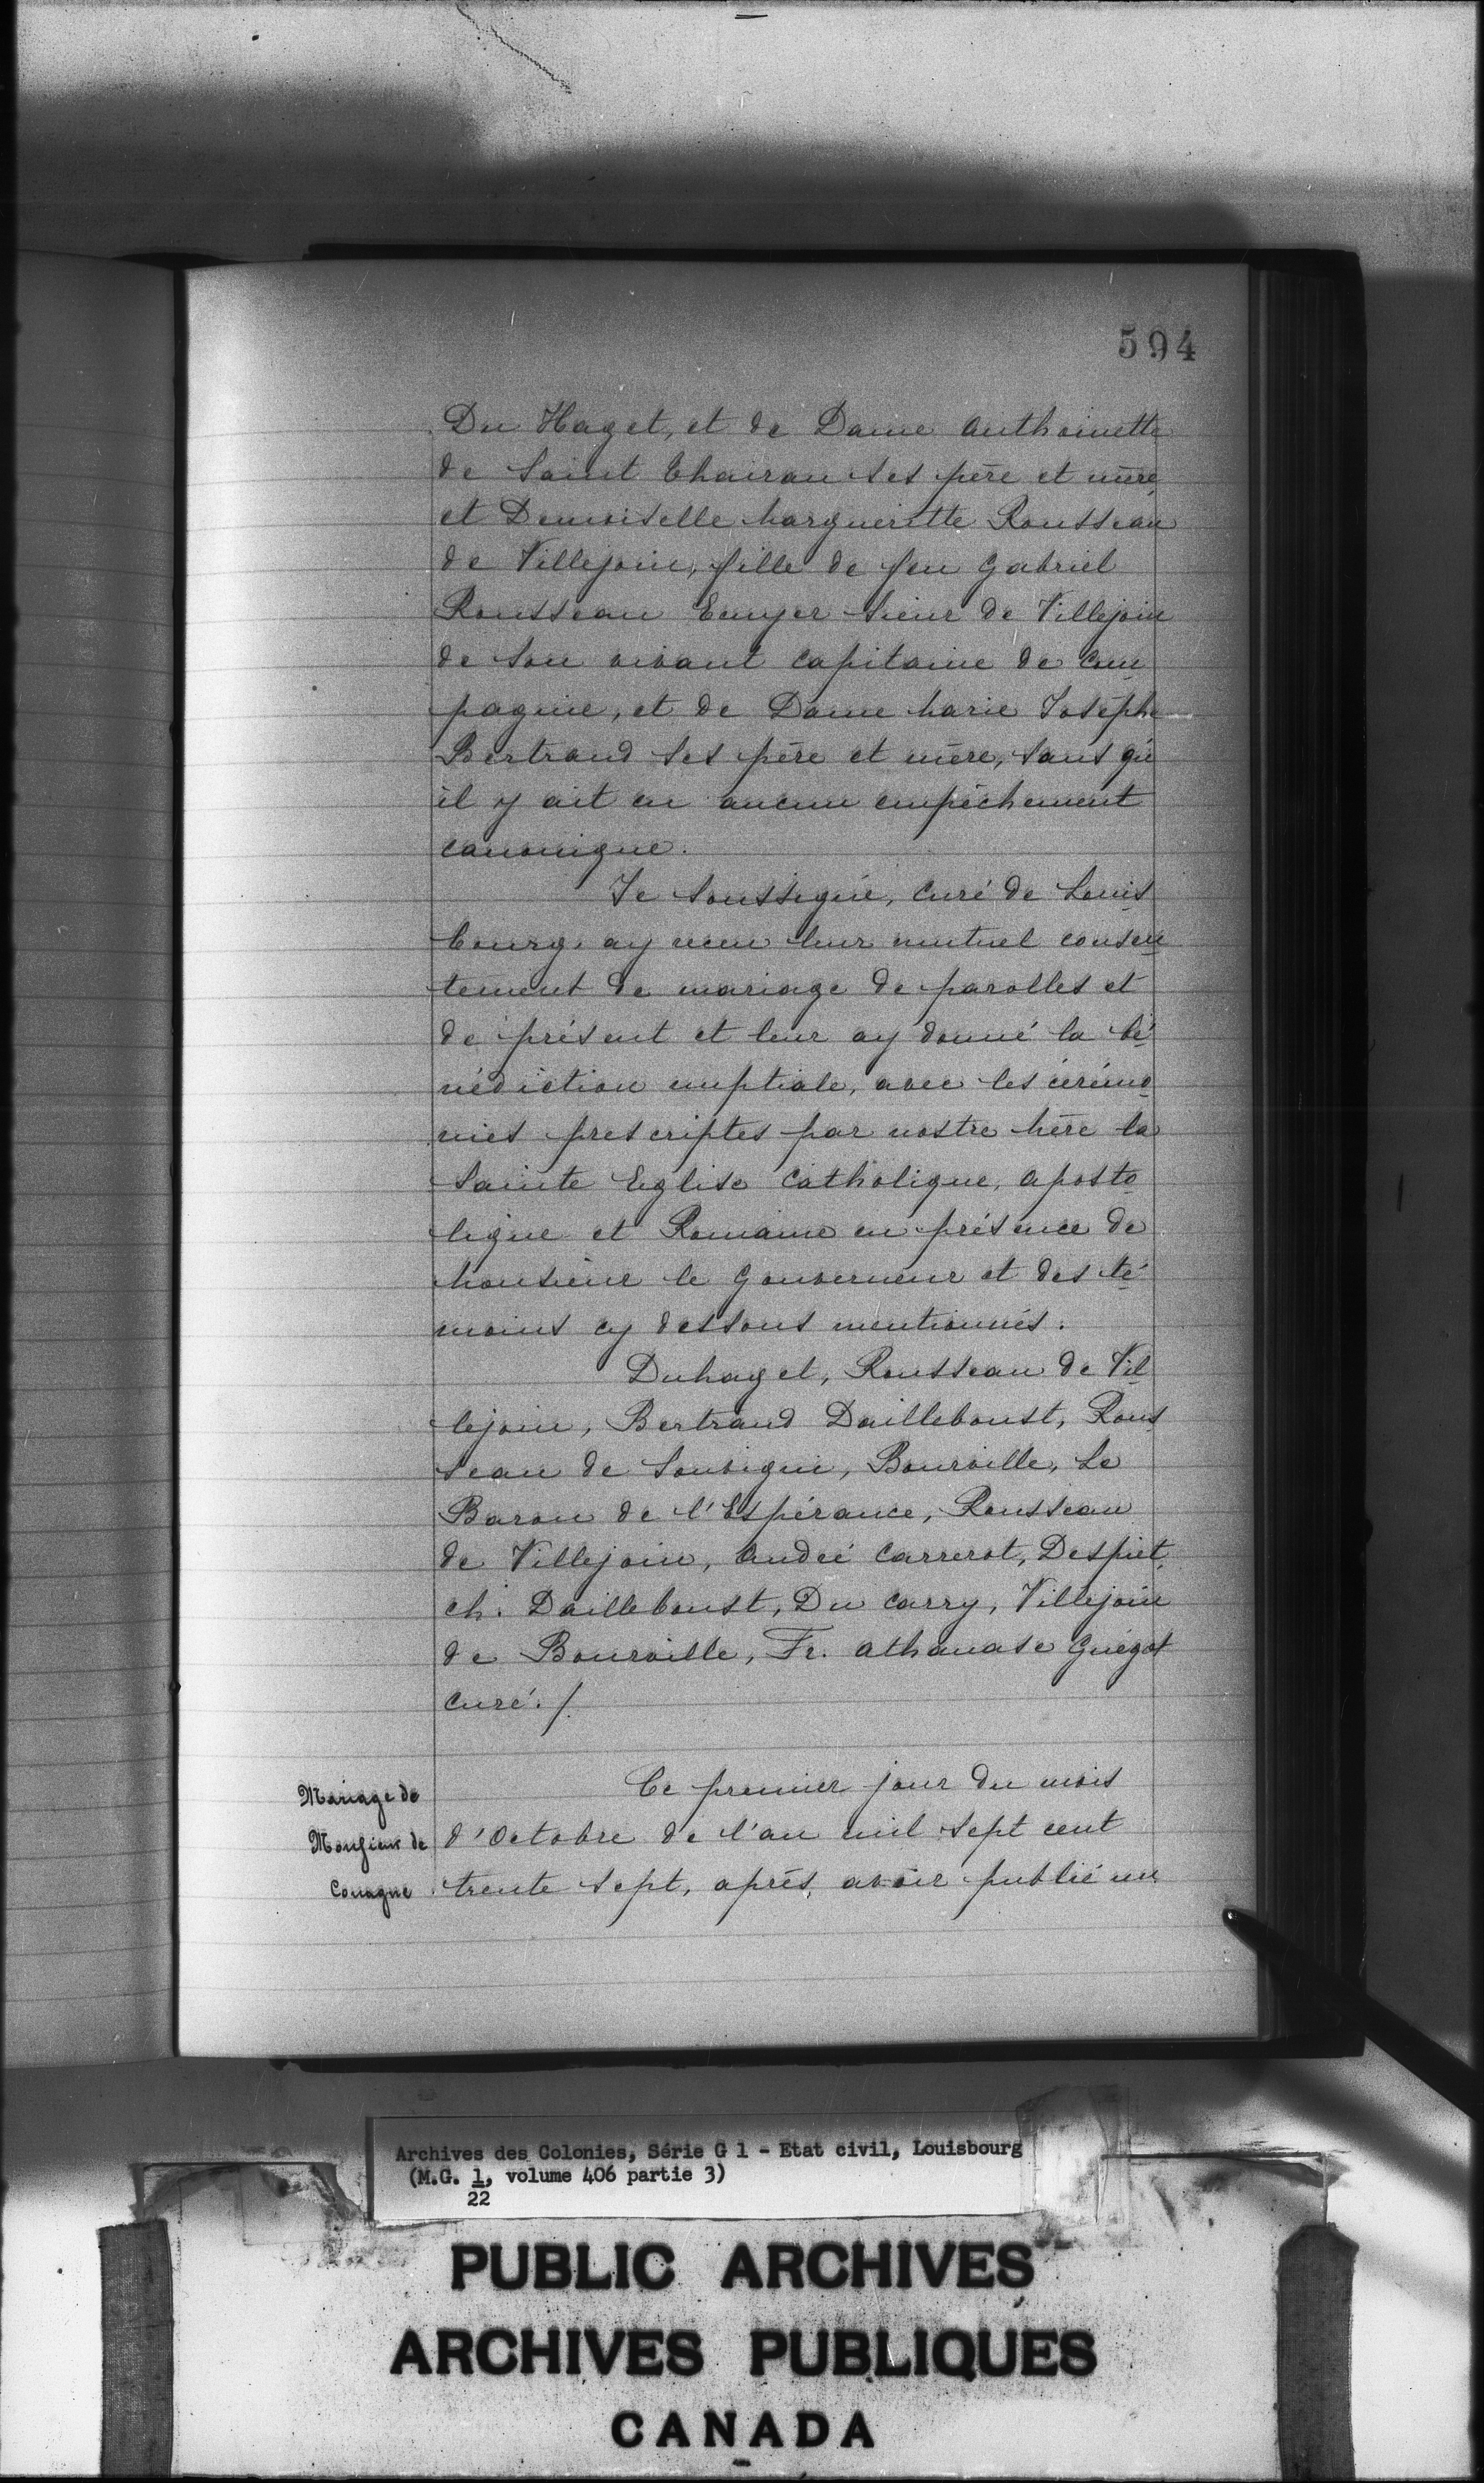 594
Du Haget, et de Dame Anthoinette
de Saint Chairan ses père et mère,
et Demoiselle Margueritte Rousseau
de Villejoin, fille de feu Gabriel
Rousseau Ecuyer Sieur de Villejoin
de son vivant capitaine de com
pagnie, et de Dame Marie Josephe
Bertrand ses père et mère, sans qu'
il y ait eu aucun empêchement
canonique.
Je Soussigné, curé de Louis
bourg, ay receu leur mutuel consen
tement de mariage de parolles et
de présent et leur ay donné la bé
nédiction nuptiale, avec les cérémo
nies prescriptes par nostre Mère la
Sainte Eglise Catholique, aposto
lique et Romaine en présence de
Monsieur le Gouverneur et des té
moins cy dessous mentionnés.
Duhaget, Rousseau de Vil
lejoin, Bertrand Dailleboust, Rous
seau de Souvigni, Bourville, Le
Baron de l'Espérance, Rousseau
de Villejoin, André Carrerot, Despiet,
ch. Dailleboust, Du Carry, Villejoin
de Bourville, Fr. Athanase Guégot
curé./.
Mariage de
Monsieur de
Couagne
Ce premier jour du mois
d'Octobre de l'an mil sept cent
trente sept, après, avoir publié un
Archives des Colonies, Série G 1 - Etat civil, Louisbourg
(M.G. 1, volume 406 partie 3)
22
PUBLIC ARCHIVES
ARCHIVES PUBLIQUES
CANADA